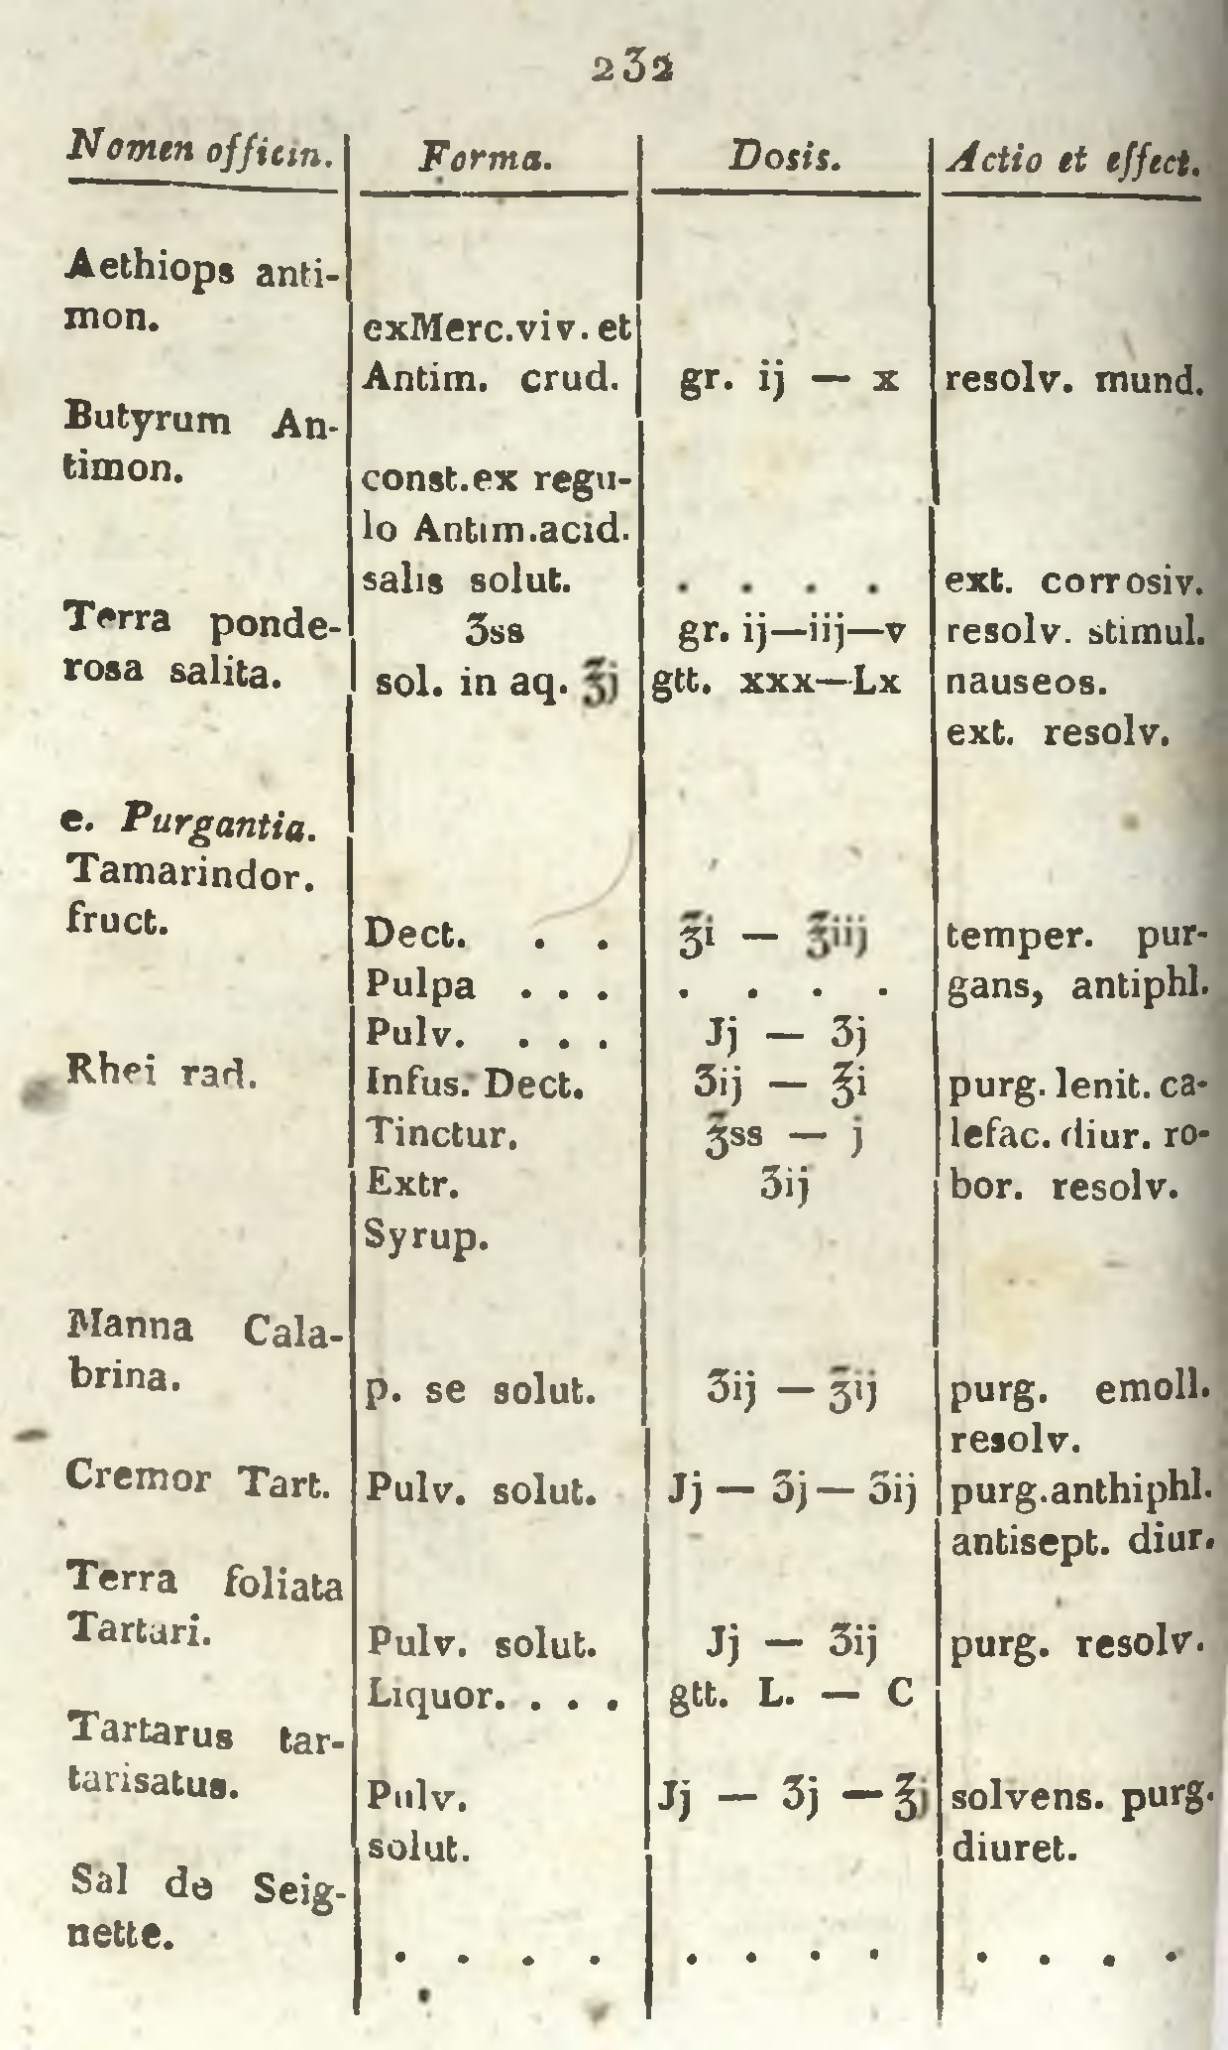 232
Nomen officin. Forma. Dosis. Actio et effect.
Aethiops anti-
mon. exMerc.viv. et
Antim. crud. gr. ij — x resolv. mund.
Butyrum An-
timon. const.ex regu-
lo Antim.acid.
salis solut. . . . . ext. corrosiv.
Terra ponde- ʒss gr. ij—iij—v resolv. stimul.
rosa salita. sol. in aq. ℥j gtt. xxx—Lx nauseos.
ext. resolv.
e. Purgantia.
Tamarindor.
fruct. Dect. . . ℥i — ℥iij temper. pur-
Pulpa . . . . . . . gans, antiphl.
Pulv. . . . Jj — ʒj
Rhei rad. Infus. Dect. ʒij — ℥i purg. lenit. ca-
Tinctur. ℥ss — j lefac. diur. ro-
Extr. ʒij bor. resolv.
Syrup.
Manna Cala-
brina. p. se solut. ʒij — ℥ij purg. emoll.
resolv.
Cremor Tart. Pulv. solut. Jj — ʒj — ʒij purg.anthiphl.
antisept. diur.
Terra foliata
Tartari. Pulv. solut. Jj — ʒij purg. resolv.
Liquor. . . . gtt. L. — C
Tartarus tar-
tarisatus. Pulv. Jj — ʒj — ℥j solvens. purg.
solut. diuret.
Sal de Seig-
nette. . . . . . . . . . . . .